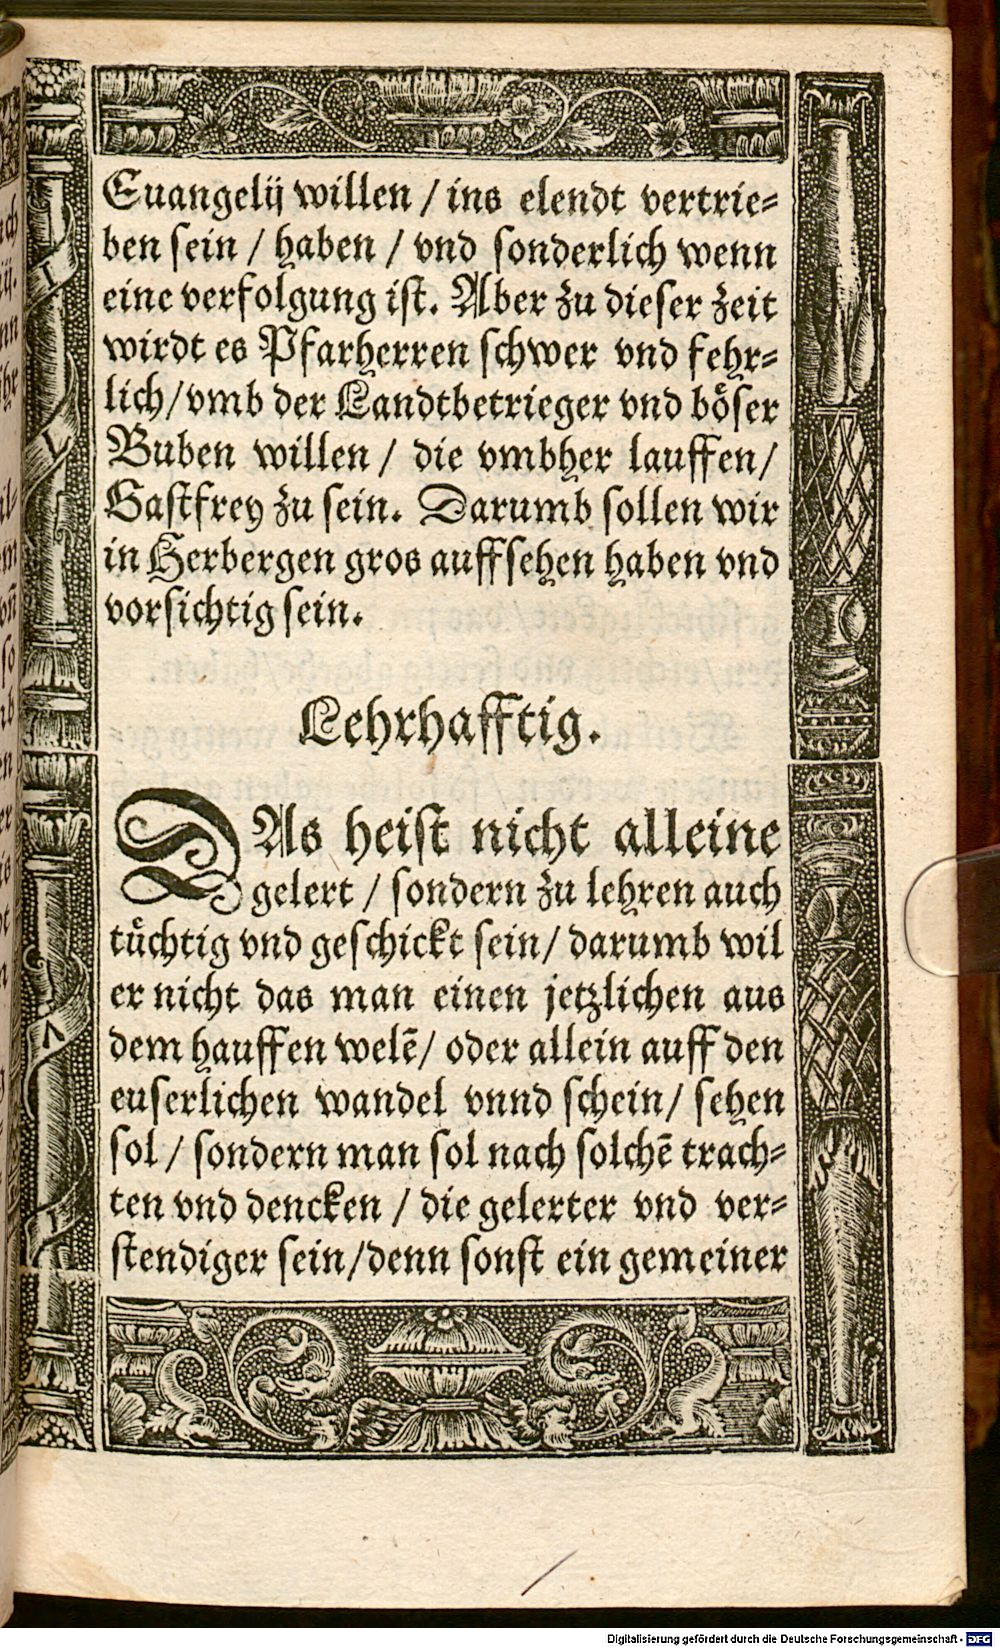 Euangelij willen / ins elendt vertrie-
ben sein / haben / vnd sonderlich wenn
eine verfolgung ist. Aber zu dieser zeit
wirdt es Pfarherren schwer vnd fehr-
lich / vmb der Landtbetrieger vnd böser
Buben willen / die vmbher lauffen /
Gastfrey zu sein. Darumb sollen wir
in Herbergen gros auffsehen haben vnd
vorsichtig sein.
Lehrhafftig.
DAs heist nicht alleine
gelert / sondern zu lehren auch
tüchtig vnd geschickt sein / darumb wil
er nicht das man einen jetzlichen aus
dem hauffen welē / oder allein auff den
euserlichen wandel vnnd schein / sehen
sol / sondern man sol nach solchē trach-
ten vnd dencken / die gelerter vnd ver-
stendiger sein / denn sonst ein gemeiner
Digitalisierung gefördert durch die Deutsche Forschungsgemeinschaft - DFG